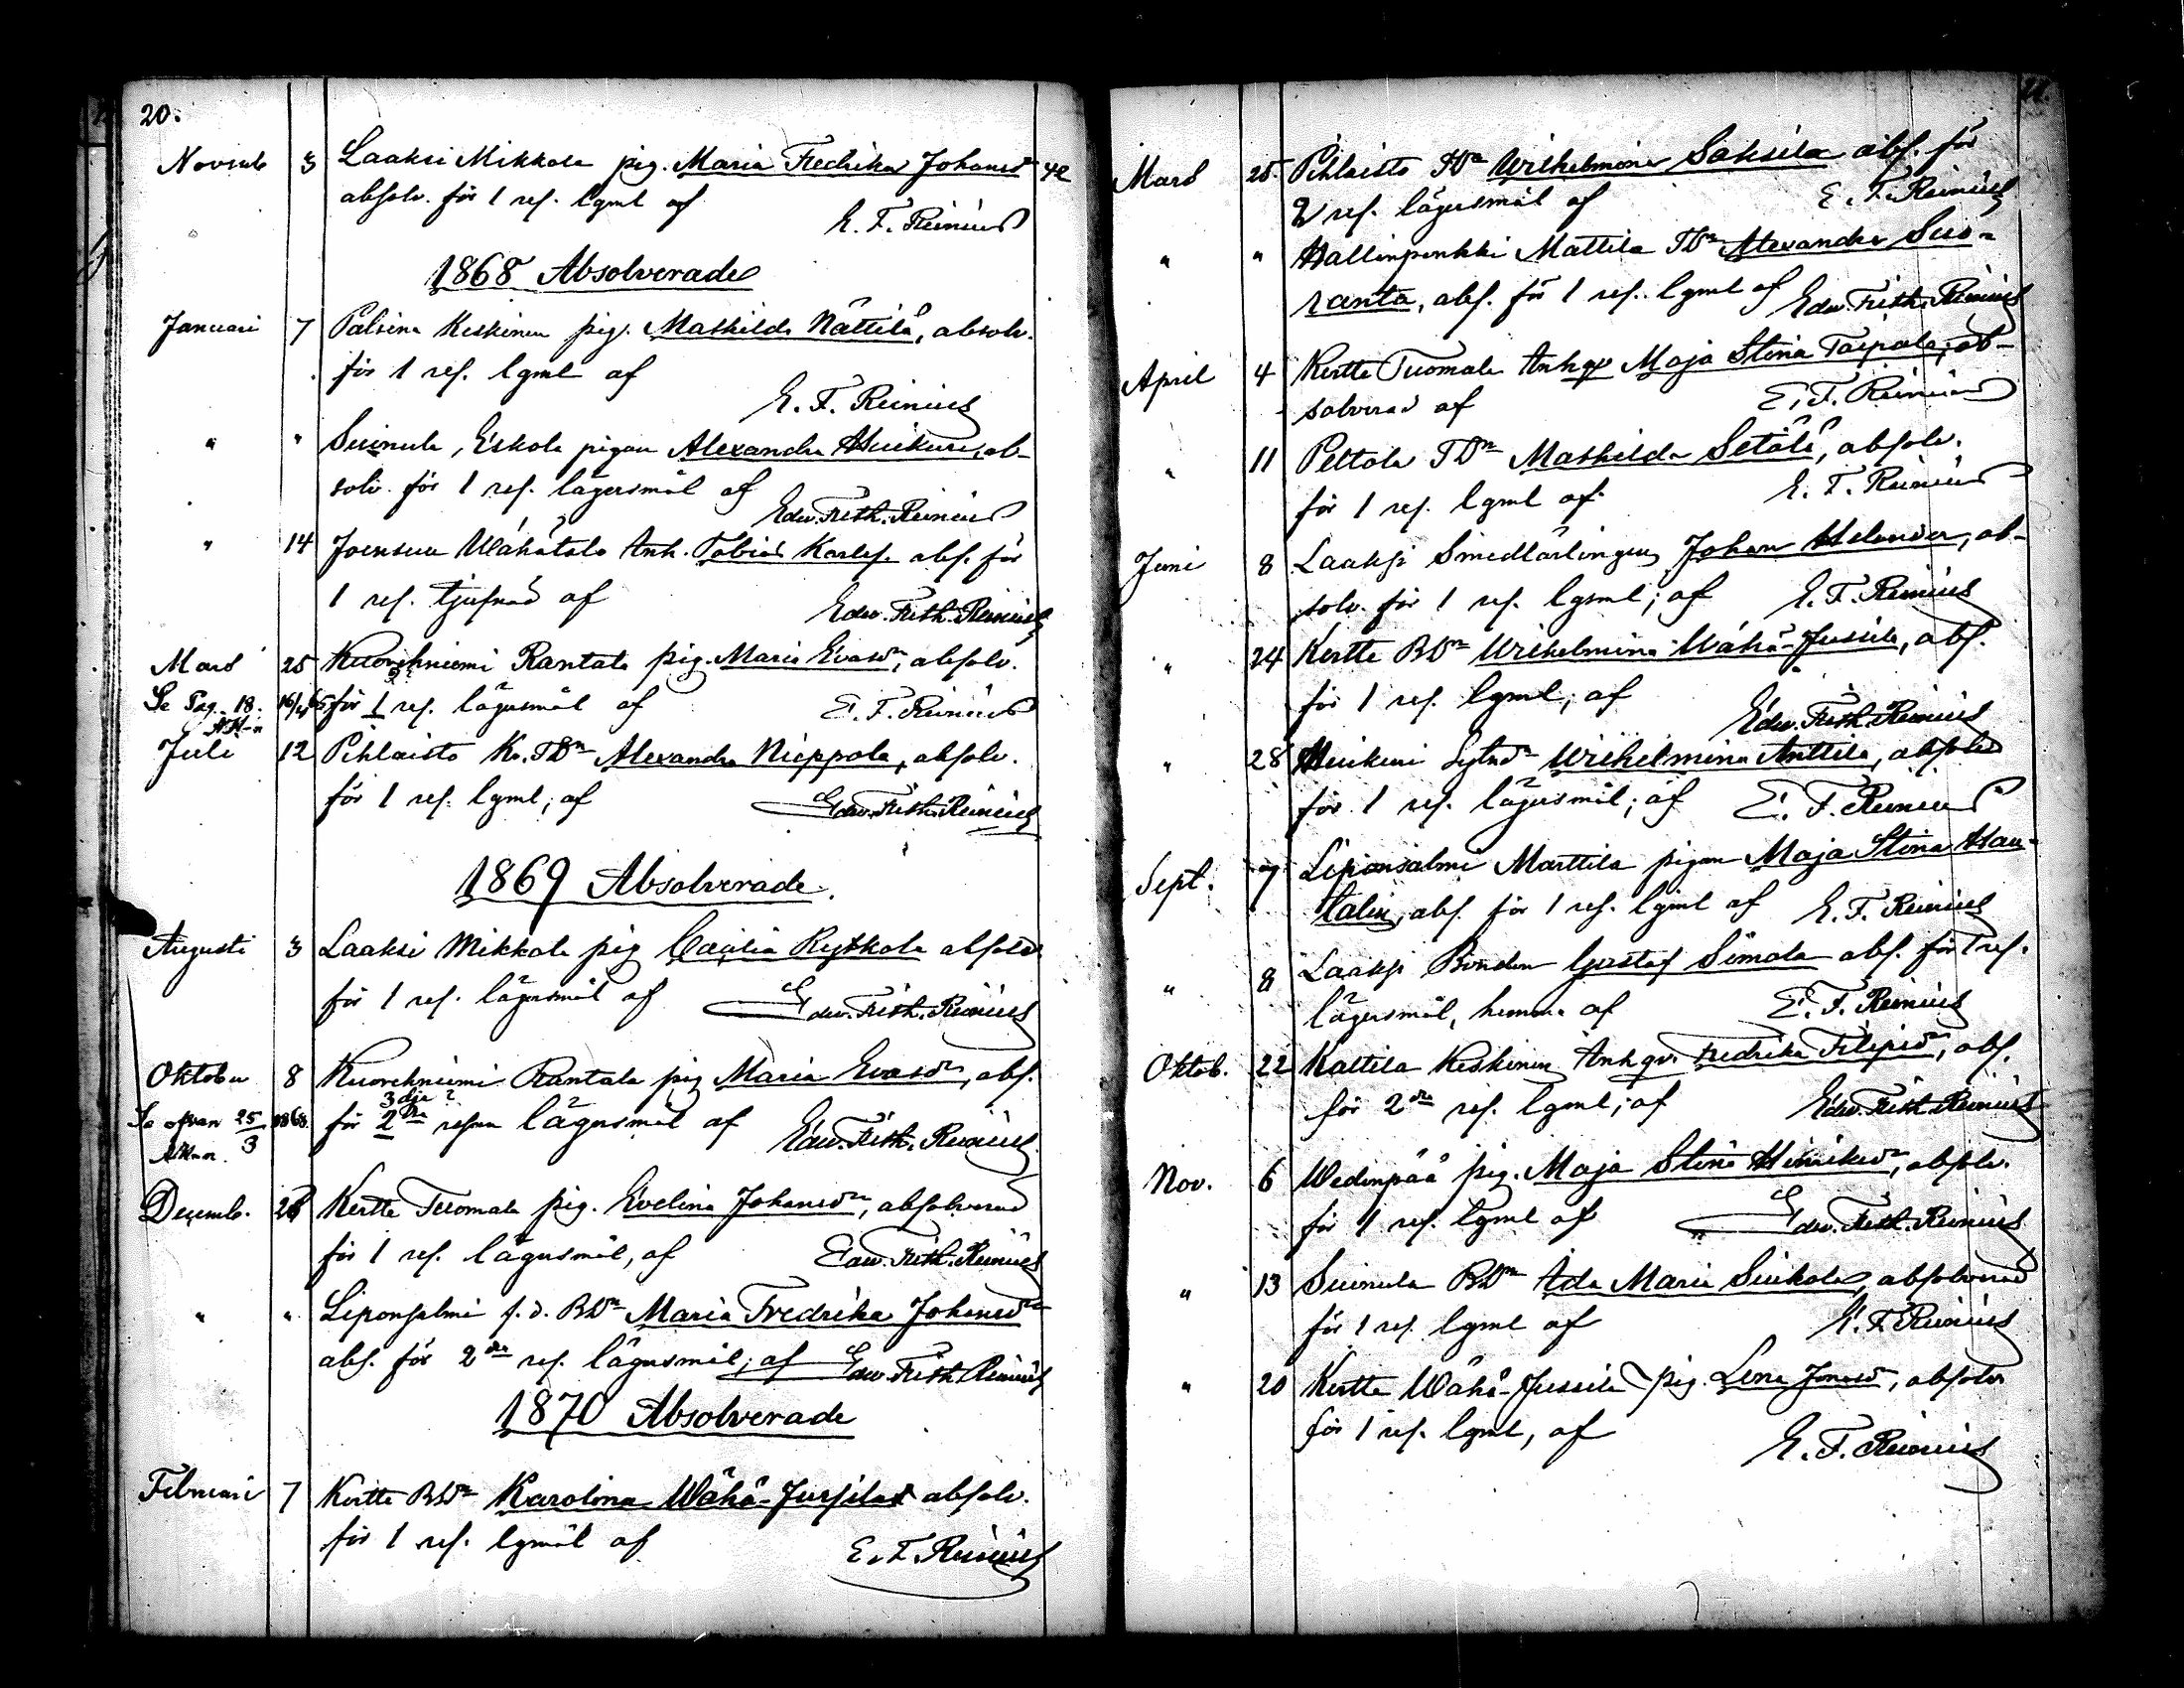 20.
Novemb 3 Laaksi Mikkola pig. Maria Fredrika Johansdr 42
absolv. för 1 res. lgml af
E. F. Reinius
1868 Absolverade
Januari 7 Palsina Keskinen pig. Mathilda Nättilä, absolv.
för 1 res. lgml af
E. F. Reinius
" " Suinula, Eskola pigan Alexandra Huikuri, ab-
solv. för 1 res. lägersmål af
Edw. Frith. Reinius
" 14 Joensuu Wähätalo Inh. Tobias Karlss. abs. för
1 res. tjufnad af
Edw. Frith. Reinius
Mars 25 Kuorehniemi Rantala pig. Maria Evasdr, absolv.
Se Pag. 18. 16/4 65 för 1 res. lägersmål af E. F. Reinius
Juli 12 Pihlaisto Ko. TDr Alexandra Nieppola, absolv.
för 1 res. lgml; af Edw. Frith. Reinius
1869 Absolverade.
Augusti 3 Laaksi Mikkola pig Cecilia Rytkola absolv
för 1 res. lägersmål af Edw. Frith. Reinius
Oktober 8 Kuorehniemi Rantala pig Maria Evasdr, abs.
3dje ?
Se ofvan 25/3 1868. för 2dra resan lägersmål af Edw. Frith. Reinius
Decemb. 26 Kertte Tuomala pig. Evelina Johansdr, absolverad
för 1 res. lägersmål, af Edw. Frith. Reinius
" " Liponsalmi f. d. BDr Maria Fredrika Johansdr
abs. för 2dra res. lägersmål; af Edw. Frith Reinius
1870 Absolverade
Februari 7 Kertte BDr Karolina Wähä-Jussila absolv.
för 1 res. lgmål af
E. F. Reinius
21.
Mars 25. Pihlaisto TDr Wilhelmina Saksila abs. för
2 res. lägersmål af E. F. Reinius
" " Hallinpenkki Mattila TDr Alexandra Suo-
ranta, abs. för 1 res. lgml af Edw. Frith. Reinius
April 4 Kertte Tuomala Inhqv Maja Stina Taipale; ab-
solverad af E. F. Reinius
" 11 Peltola TDr Mathilda Setälä, absolv.
för 1 res. lgml af E. F. Reinius
Juni 8 Laaksi Smedlärlingen Johan Helander, ab-
solv. för 1 res. lgml; af E. F. Reinius
" 24 Kertte BDr Wilhelmina Wähä-Jussila, abs.
för 1 res. lgml; af
Edw. Frith. Reinius
" 28 Huikuri Sytndr Wilhelmina Anttila, absolv
för 1 res. lägersmål; af E. F. Reinius
Sept. 7 Liponsalmi Marttila pigan Maja Stina Hau-
talin, abs. för 1 res. lgml af E. F. Reinius
" 8 Laaksi Bonden Gustaf Simola abs. för 1 res.
lägersmål, hemma af E. F. Reinius
Oktob. 22 Kaltila Keskinen Inhqv. Fredrika Filipsdr, abs.
för 2dra res. lgml; af Edw. Frith. Reinius
Nov. 6 Wedenpää pig. Maja Stina Henriksdr, absolv.
för 1 res. lgml af Edw. Frith. Reinius
" 13 Suinula BDr Ida Maria Siukola, absolverad
för 1 res. lgml af E. F. Reinius
" 20 Kertte Wähä-Jussila pig. Lena Jonasd, absolv
för 1 res. lgml, af
E. F. Reinius